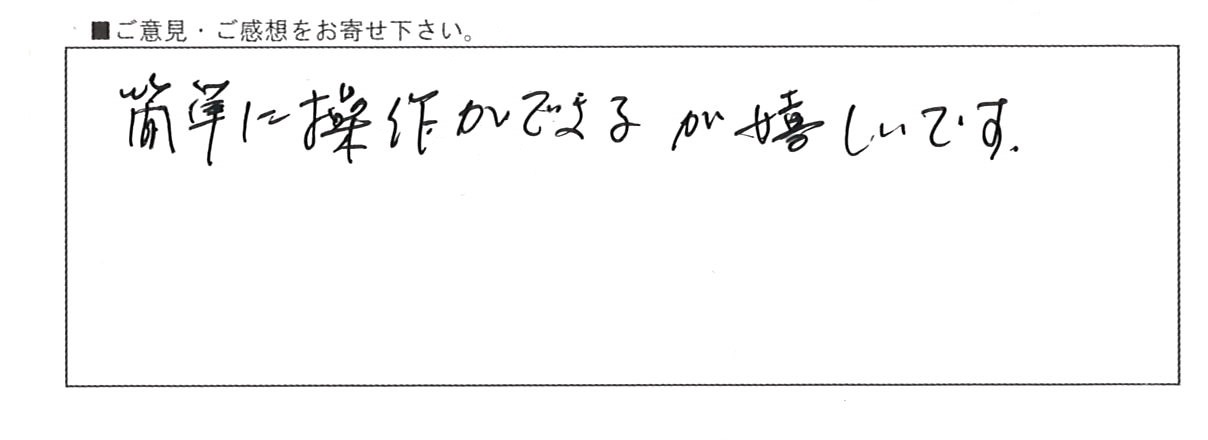 ■ご意見・ご感想をお寄せ下さい。
簡単に操作ができるが嬉しいです.